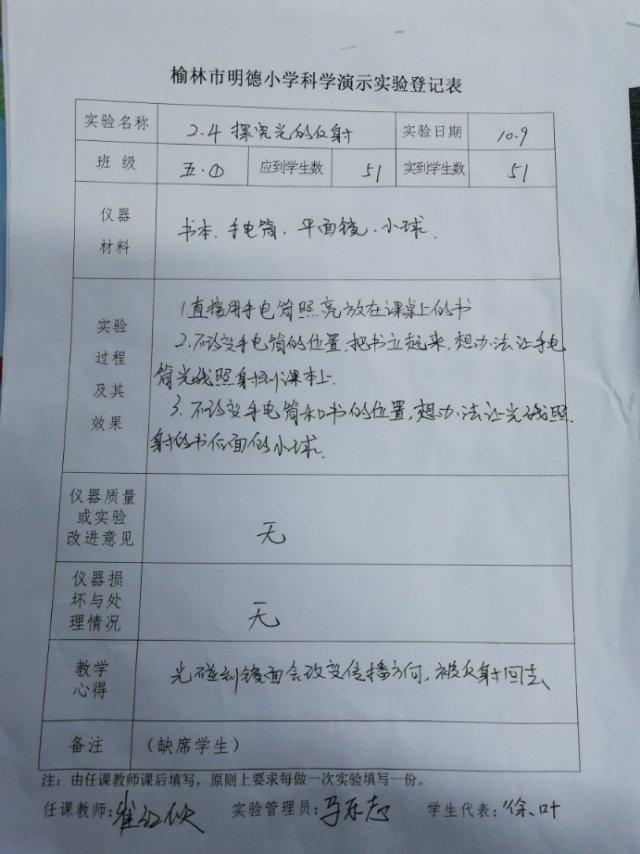 榆林市明德小学科学演示实验登记表
实验名称 2.4 探究光的反射 实验日期 10.9
班 级 五.① 应到学生数 51 实到学生数 51
仪器
材料
书本、手电筒、平面镜、小球.
实验
过程
及其
效果
1.直接用手电筒照亮放在课桌上的书
2.不改变手电筒的位置,把书立起来,想办法让手电
筒光线照射到课本上.
3.不改变手电筒和书的位置,想办法让光线照
射的书后面的小球.
仪器质量
或实验
改进意见
无
仪器损
坏与处
理情况
无
教学
心得
光碰到镜面会改变传播方向,被反射回去
备注 (缺席学生)
注:由任课教师课后填写,原则上要求每做一次实验填写一份。
任课教师: 实验管理员: 学生代表: